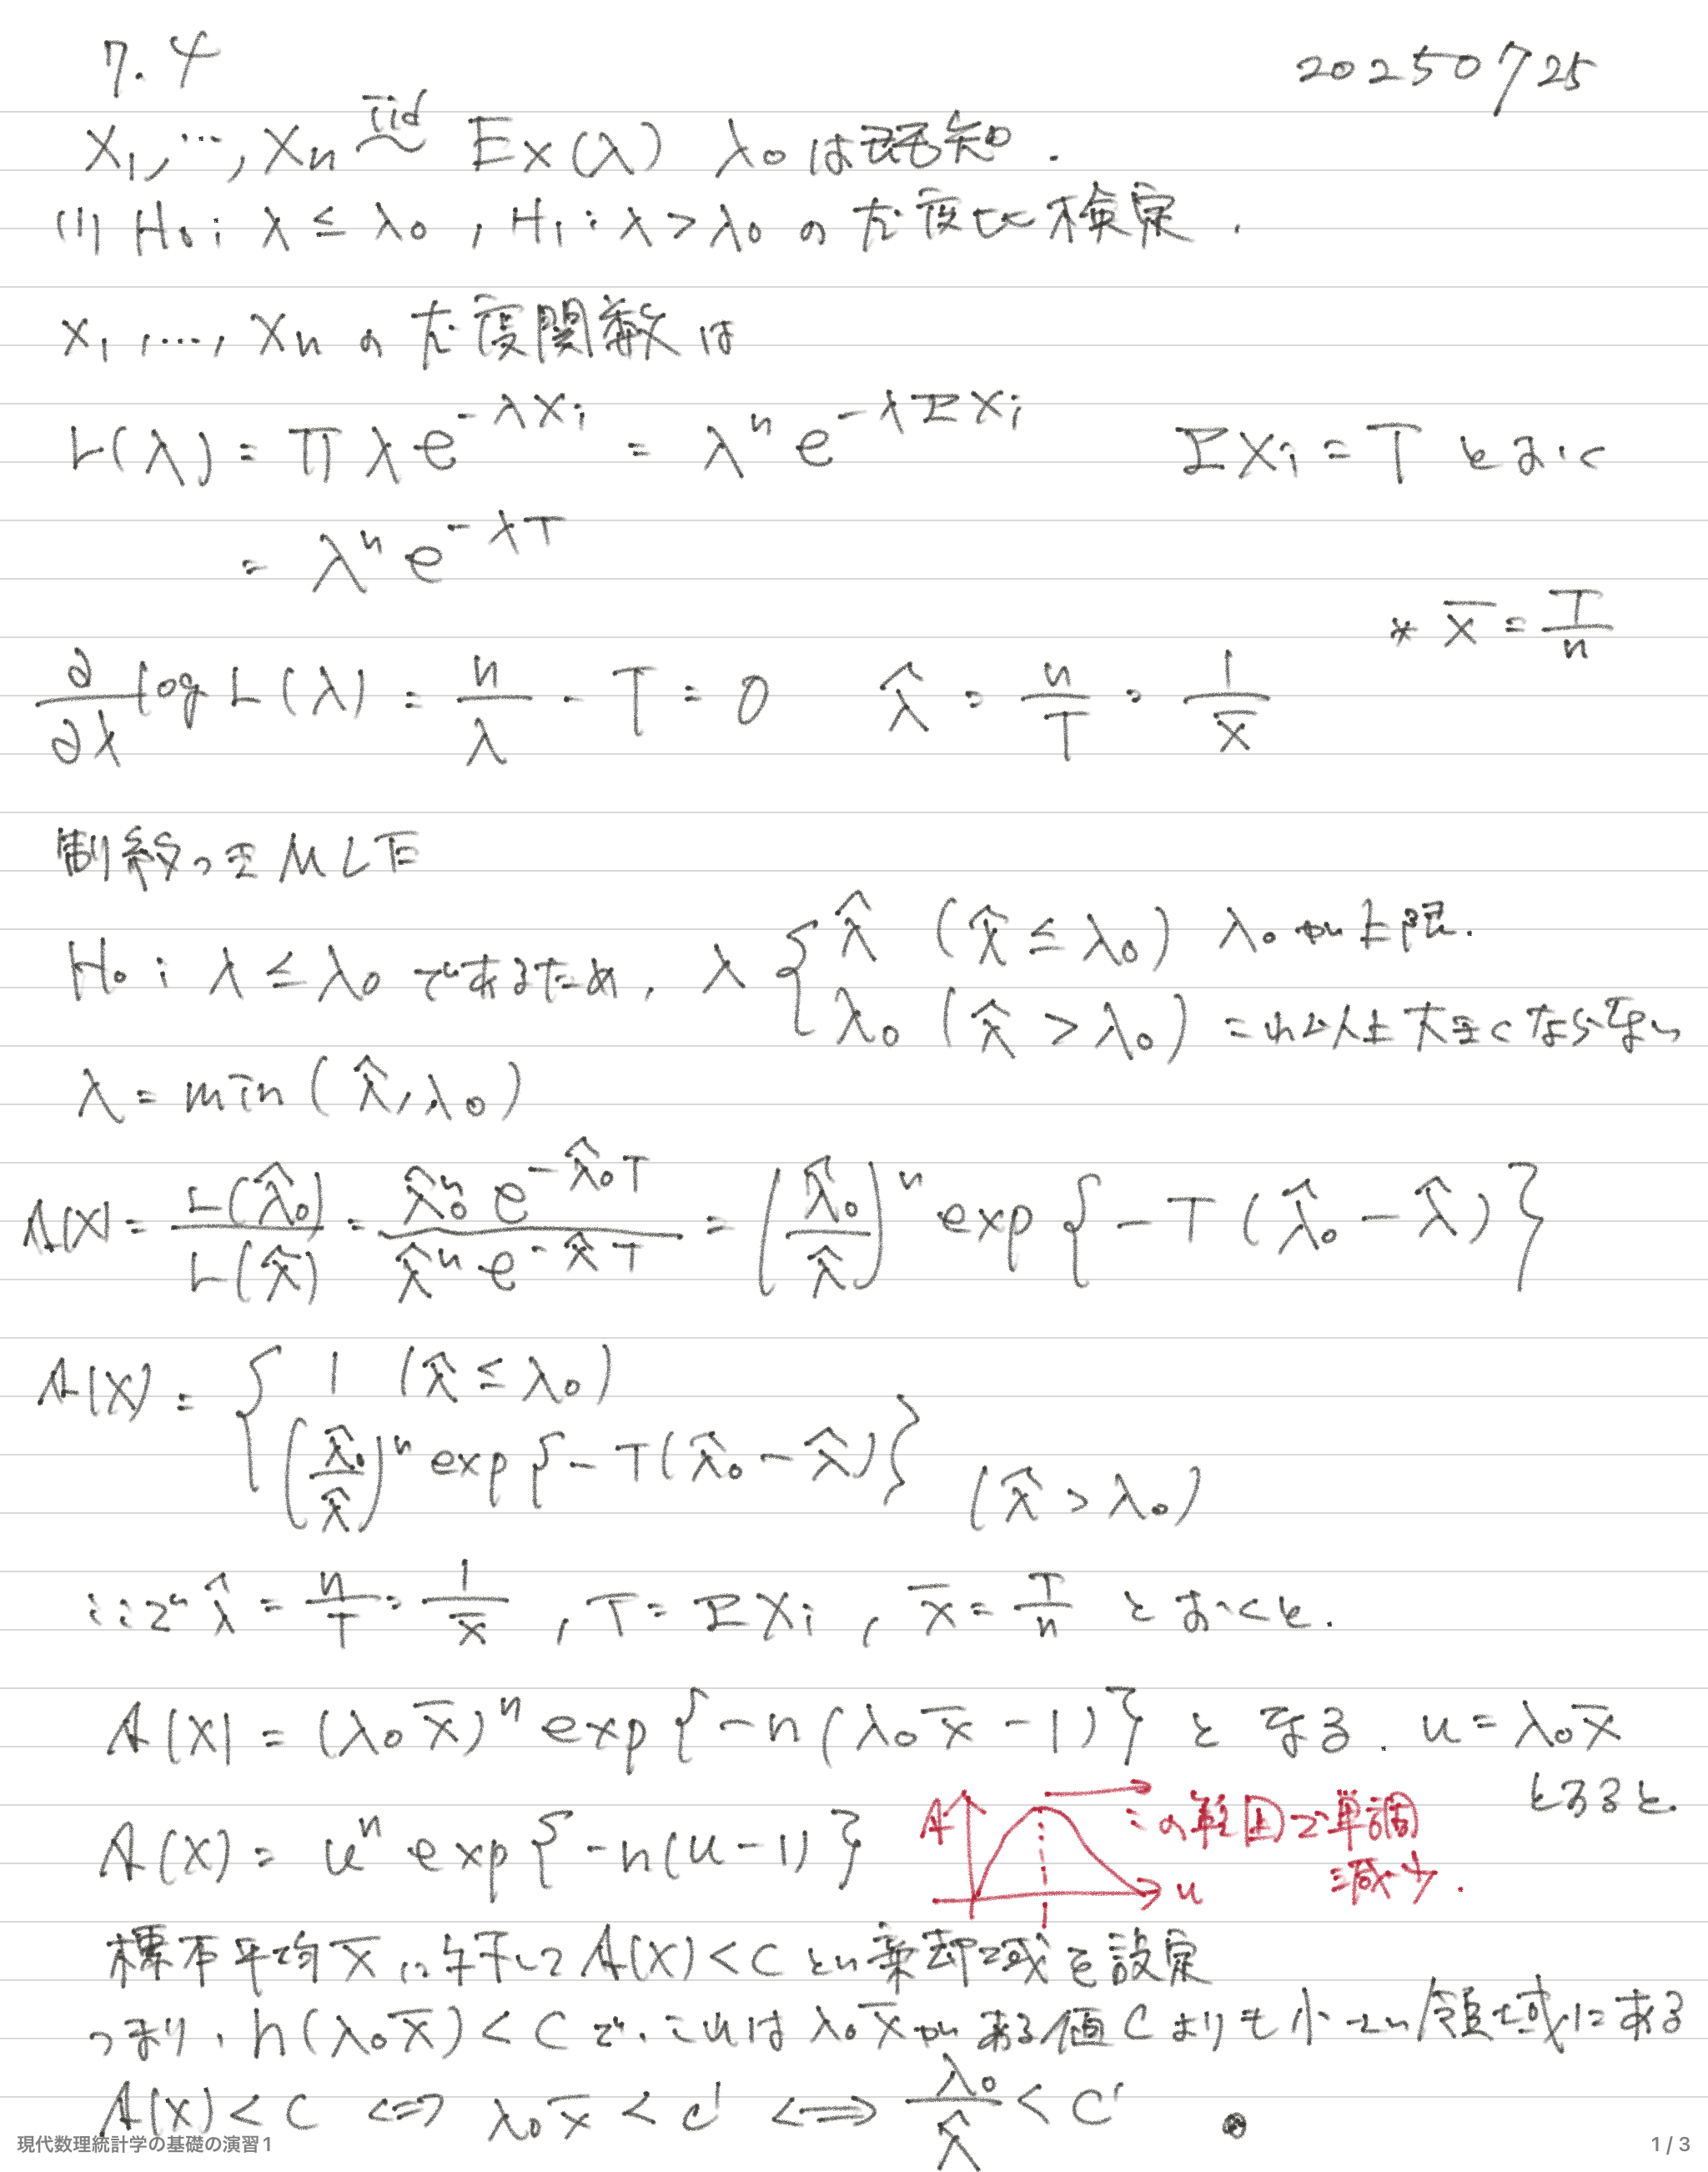 7.4
20250725
X1,…,Xn iid〜 Ex(λ) λ0は既知.
(1) H0: λ ≤ λ0, H1: λ > λ0 の尤度比検定.
X1,…,Xn の尤度関数は
L(λ) = Π λ e^{-λXi} = λ^n e^{-λΣXi} ΣXi = T とおく
= λ^n e^{-λT}
* x̄ = T/n
∂/∂λ log L(λ) = n/λ - T = 0 λ̂ = n/T = 1/x̄
制約つきMLE
H0: λ ≤ λ0 であるため, λ { λ̂ (λ̂ ≤ λ0) λ0が上限.
λ0 (λ̂ > λ0) これ以上大きくならない
λ = min(λ̂, λ0)
Λ(X) = L(λ̂0)/L(λ̂) = λ̂0^n e^{-λ̂0T} / λ̂^n e^{-λ̂T} = (λ̂0/λ̂)^n exp{-T(λ̂0 - λ̂)}
Λ(X) = { 1 (λ̂ ≤ λ0)
(λ̂0/λ̂)^n exp{-T(λ̂0 - λ̂)} (λ̂ > λ0)
ここで λ̂ = n/T = 1/x̄, T = ΣXi, x̄ = T/n とおくと.
Λ(X) = (λ0x̄)^n exp{-n(λ0x̄ - 1)} となる. u = λ0x̄
とすると.
Λ(X) = u^n exp{-n(u-1)}
Λ
u
この範囲で単調
減少.
標本平均x̄に対して Λ(X) < C という棄却域を設定
つまり, h(λ0x̄) < C で, これは λ0x̄ がある値Cよりも小さい領域にある
Λ(X) < C ⇔ λ0x̄ < C' ⇔ λ0/λ̂ < C'
現代数理統計学の基礎の演習1
1 / 3